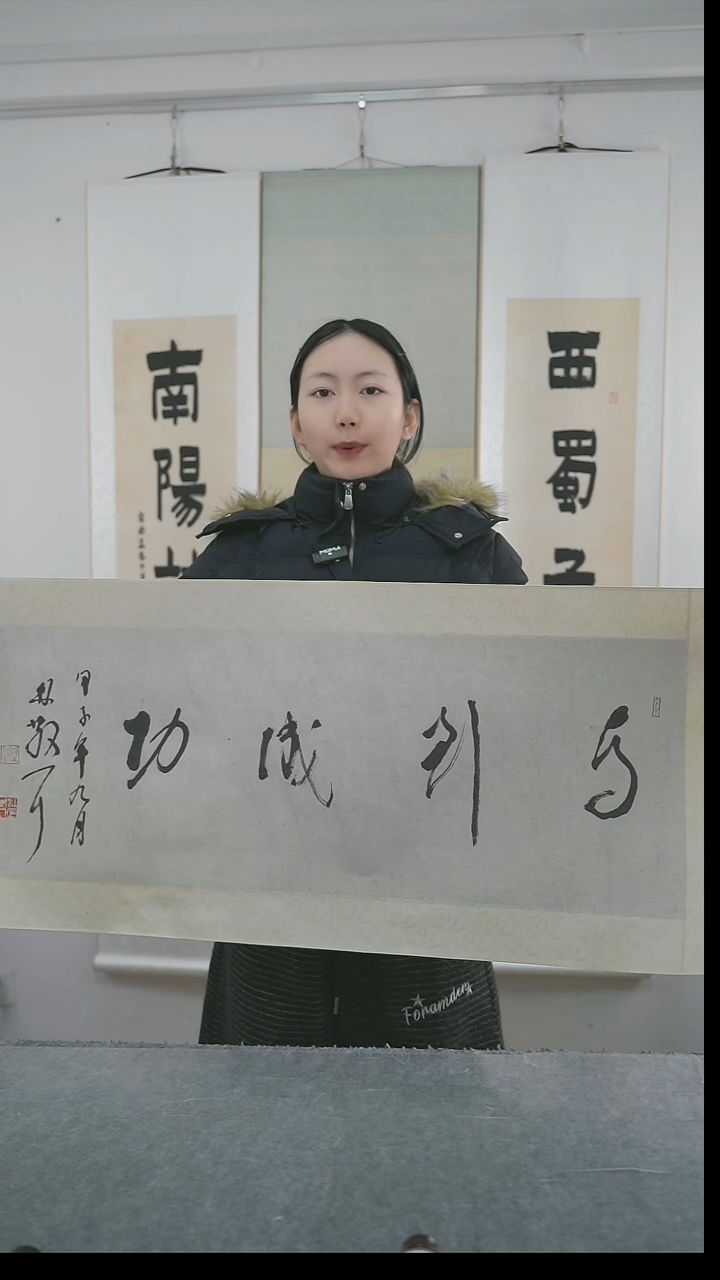 西蜀子
南陽
马到成功
甲子年九月
林散耳